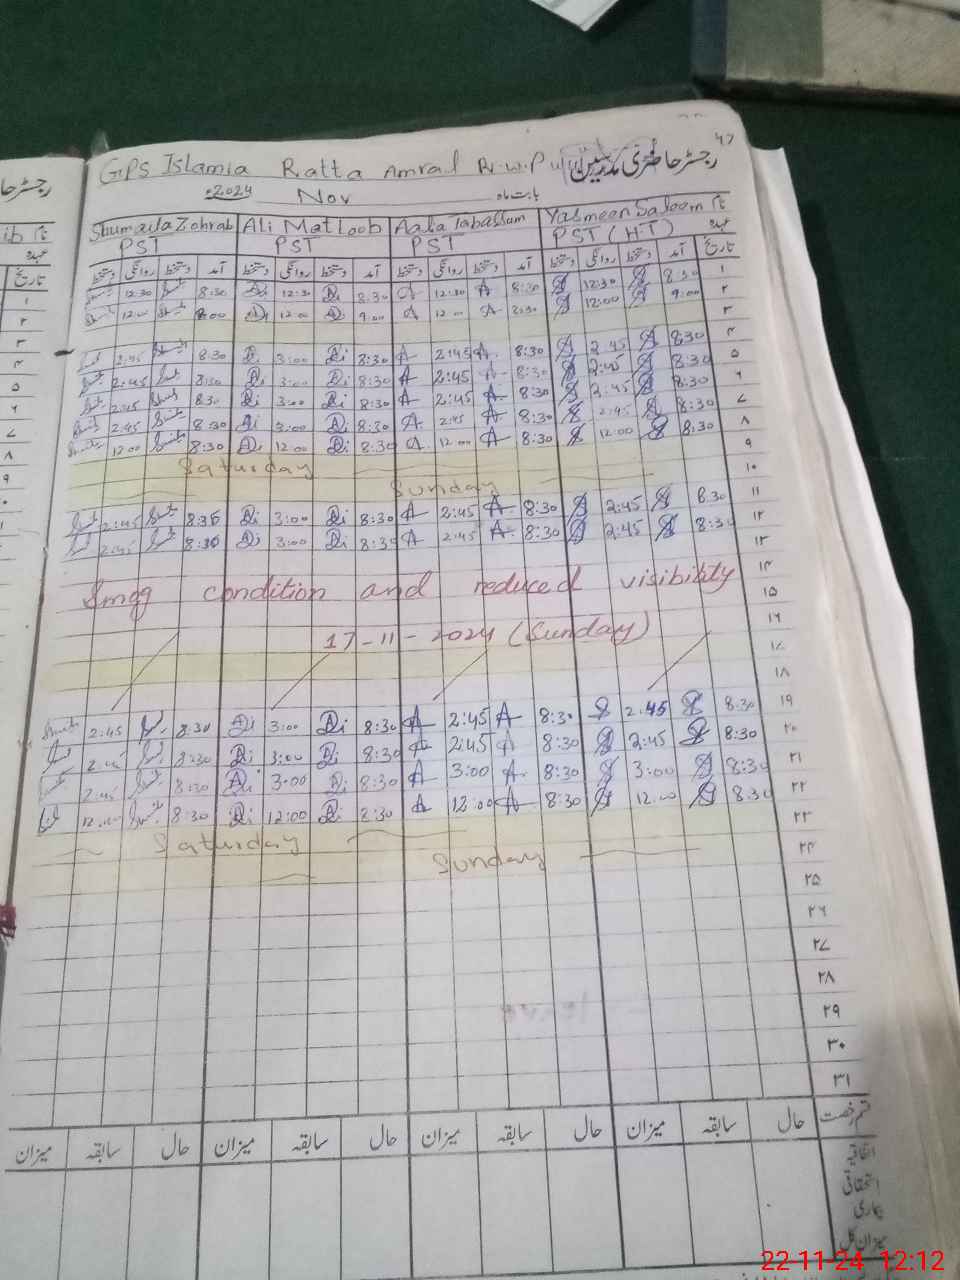 ۴۷
GPS Islamia Ratta Amral R.W.P رجسٹر حاضری مدرسین
2024 Nov بابت ماہ
Shumaila Zohrab Ali Matloob Aala Tabassum Yasmeen Saleem نام
PST PST PST PST (HT) عہدہ
دستخط روانگی دستخط آمد دستخط روانگی دستخط آمد دستخط روانگی دستخط آمد دستخط روانگی دستخط آمد تاریخ
12:30 8:30 12:30 8:30 12:30 8:30 12:30 8:30 ۱
12:00 9:00 12:00 9:00 12:00 8:30 12:00 9:00 ۲
۳
2:45 8:30 3:00 8:30 2:45 8:30 2:45 8:30 ۴
2:45 8:30 3:00 8:30 2:45 8:30 2:45 8:30 ۵
2:45 8:30 3:00 8:30 2:45 8:30 2:45 8:30 ۶
2:45 8:30 3:00 8:30 2:45 8:30 2:45 8:30 ۷
12:00 8:30 12:00 8:30 12:00 8:30 12:00 8:30 ۸
Saturday ۹
Sunday ۱۰
2:45 8:30 3:00 8:30 2:45 8:30 2:45 8:30 ۱۱
2:45 8:30 3:00 8:30 2:45 8:30 2:45 8:30 ۱۲
۱۳
Smog condition and reduced visibility ۱۴
۱۵
17-11-2024 (Sunday) ۱۶
۱۷
۱۸
2:45 8:30 3:00 8:30 2:45 8:30 2:45 8:30 ۱۹
2:45 8:30 3:00 8:30 2:45 8:30 2:45 8:30 ۲۰
2:45 8:30 3:00 8:30 3:00 8:30 3:00 8:30 ۲۱
12:00 8:30 12:00 8:30 12:00 8:30 12:00 8:30 ۲۲
Saturday ۲۳
Sunday ۲۴
۲۵
۲۶
۲۷
۲۸
۲۹
۳۰
۳۱
میزان سابقہ حال میزان سابقہ حال میزان سابقہ حال میزان سابقہ حال قسم رخصت
اتفاقیہ
استحقاقی
بیماری
میزان کل
22-11-24 12:12